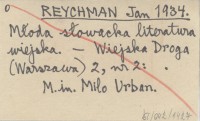 REYCHMAN Jan 1934.
Młoda słowacka literatura
wiejska. – Wiejska Droga
(Warszawa) 2, nr 2: .
M.in. Milo Urban.